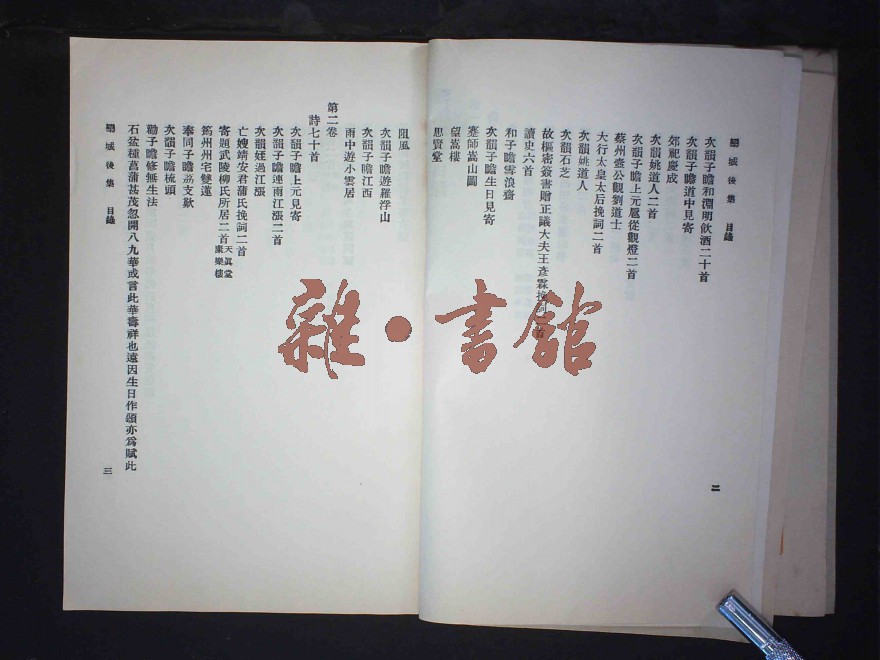 欒城後集　目錄
次韻子瞻和淵明飲酒二十首
次韻子瞻道中見寄
郊祀慶成
次韻姚道人二首
次韻子瞻上元扈從觀燈二首
蔡州壺公觀劉道士
大行太皇太后挽詞二首
次韻姚道人
次韻石芝
故樞密簽書贈正議大夫王彥霖挽詞二首
讀史六首
和子瞻雪浪齋
次韻子瞻生日見寄
蹇師嵩山圖
望嵩樓
思賢堂
二
阻風
次韻子瞻遊羅浮山
次韻子瞻江西
雨中遊小雲居
第二卷
詩七十首
次韻子瞻上元見寄
次韻子瞻連雨江漲二首
次韻姪過江漲
亡嫂靖安君蒲氏挽詞二首
寄題武陵柳氏所居二首天真堂康樂樓
筠州州宅雙蓮
奉同子瞻荔支歎
次韻子瞻梳頭
勸子瞻修無生法
石盆種菖蒲甚茂忽開八九華或言此華壽祥也遠因生日作頌亦為賦此
欒城後集　目錄
三
雜·書館